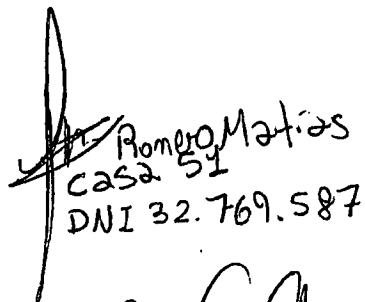 Romero Matias
casa 51
DNI 32.769.587